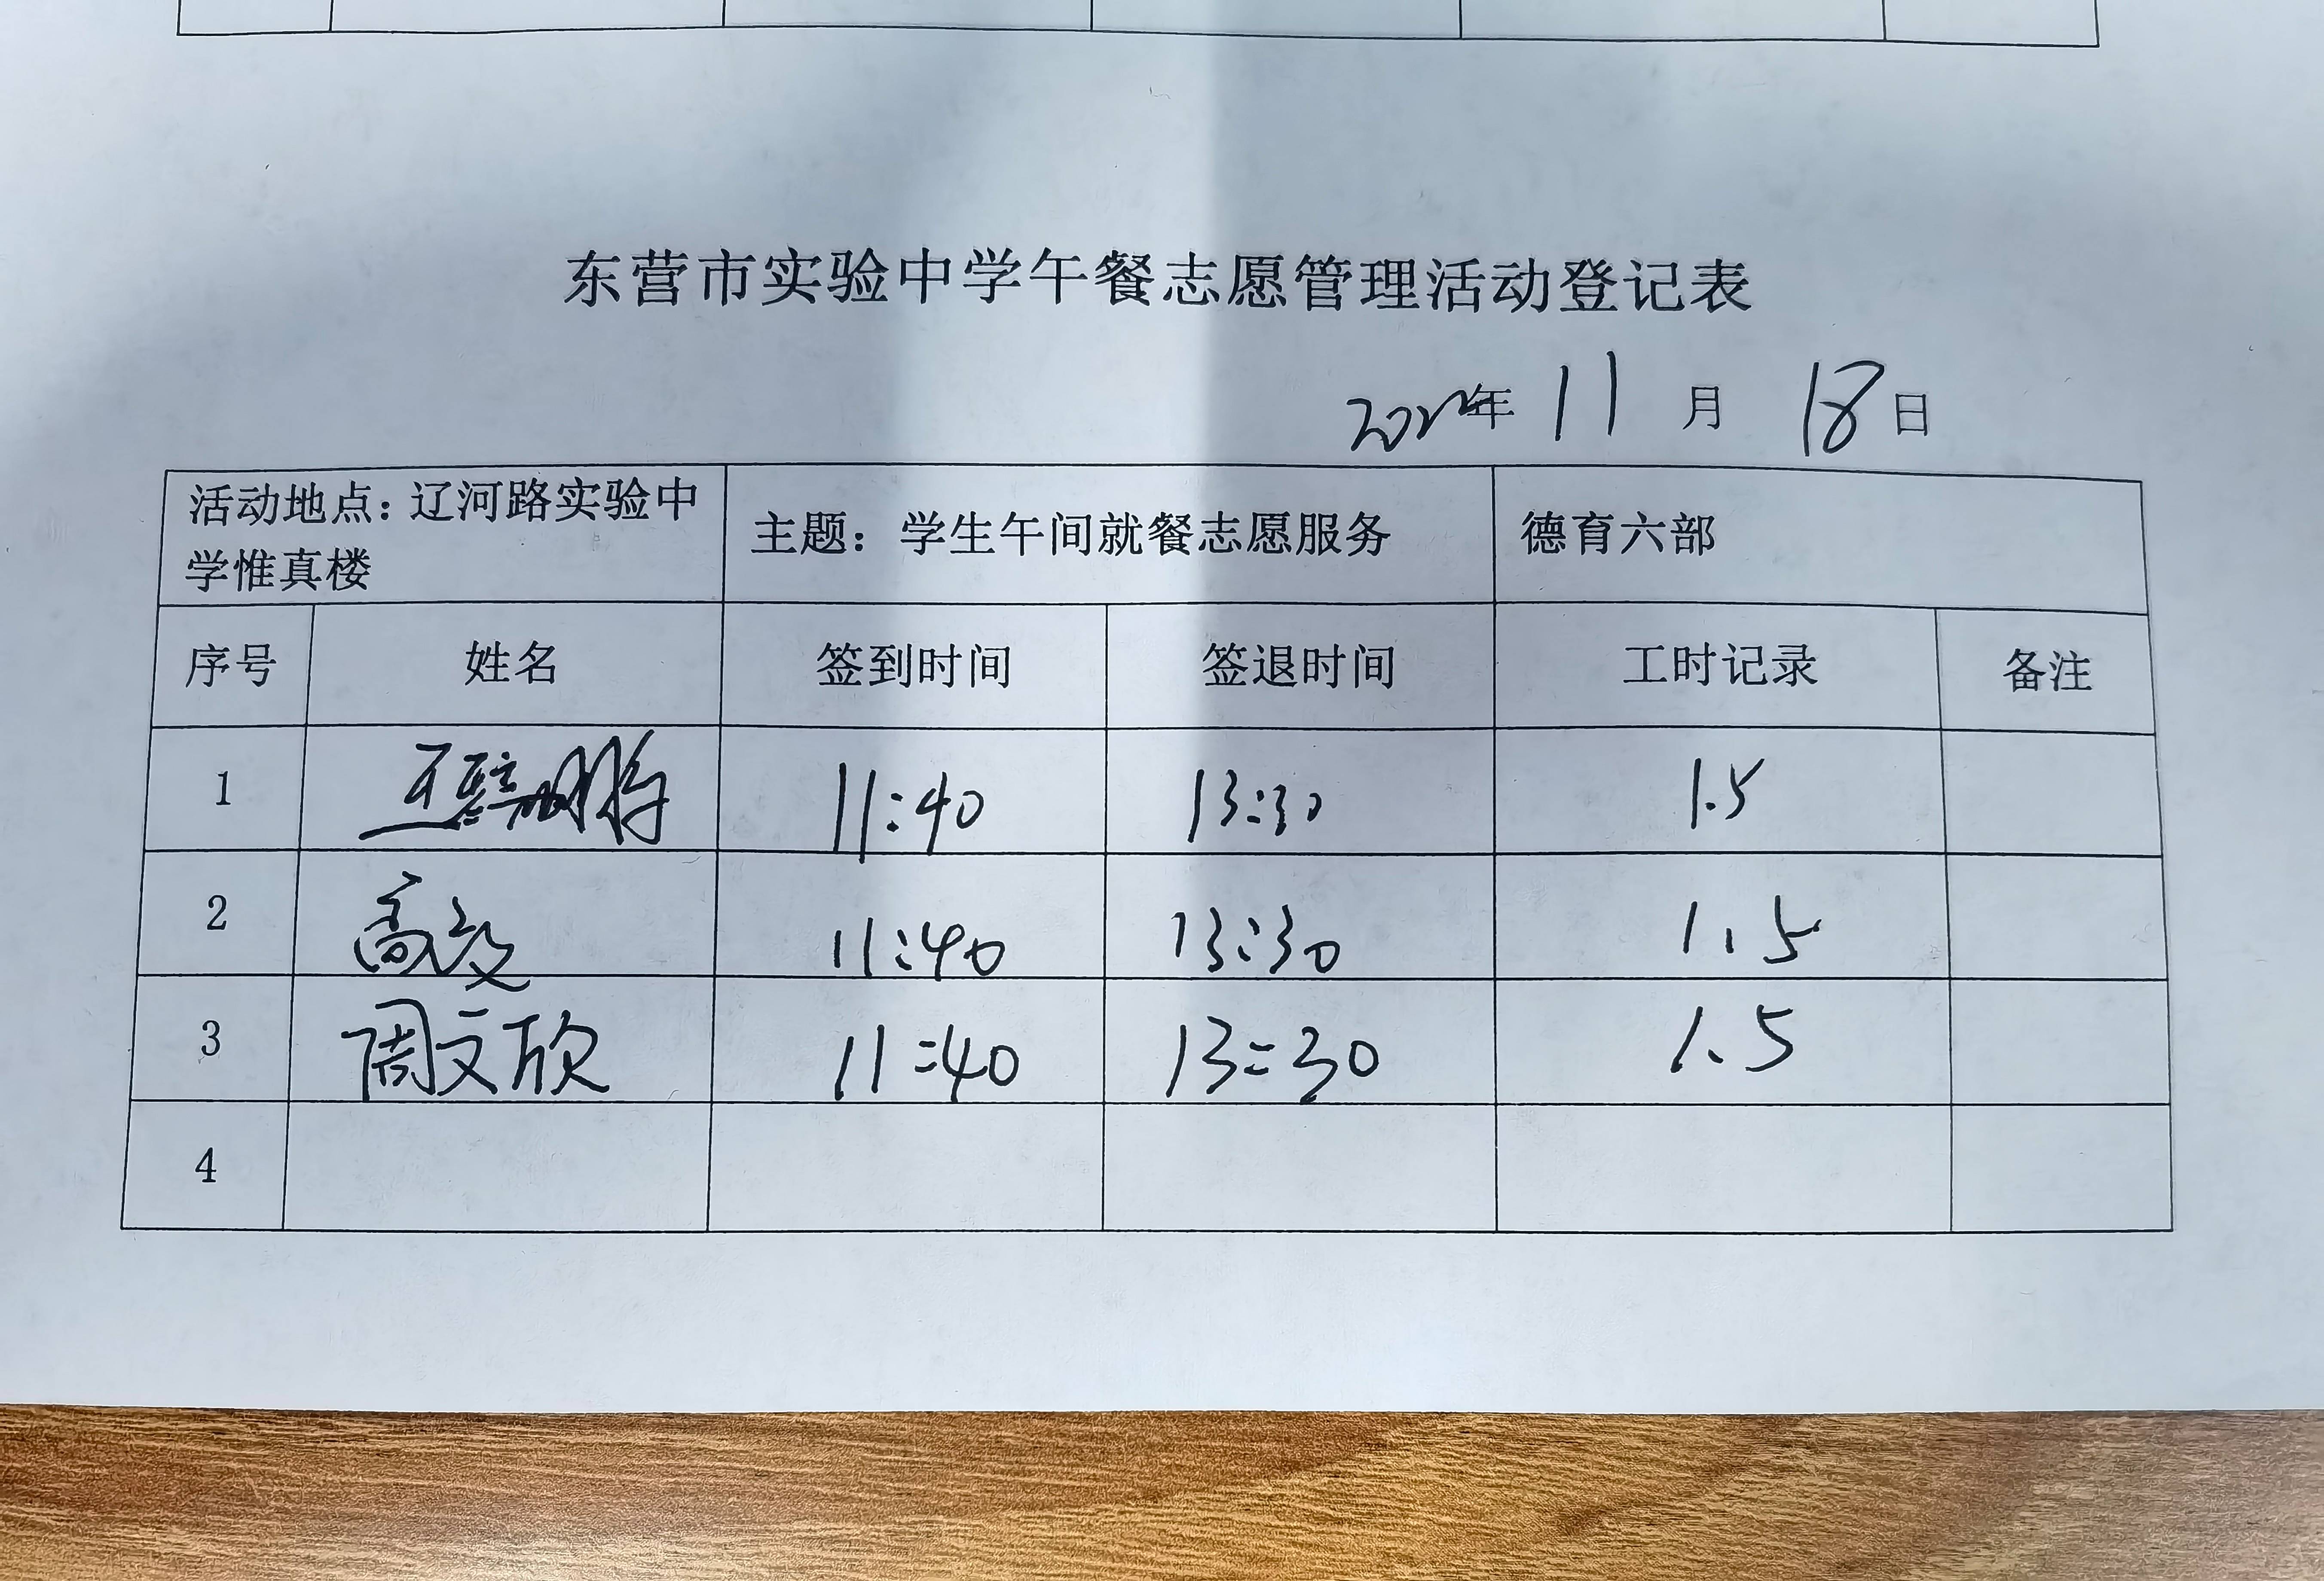 东营市实验中学午餐志愿管理活动登记表
年 11 月 18 日
活动地点：辽河路实验中
学惟真楼
主题： 学生午间就餐志愿服务
德育六部
序号 姓名 签到时间 签退时间 工时记录 备注
1 11:40 13:30 1.5
2 高 11:40 13:30 1.5
3 周文欣 11:40 13:30 1.5
4